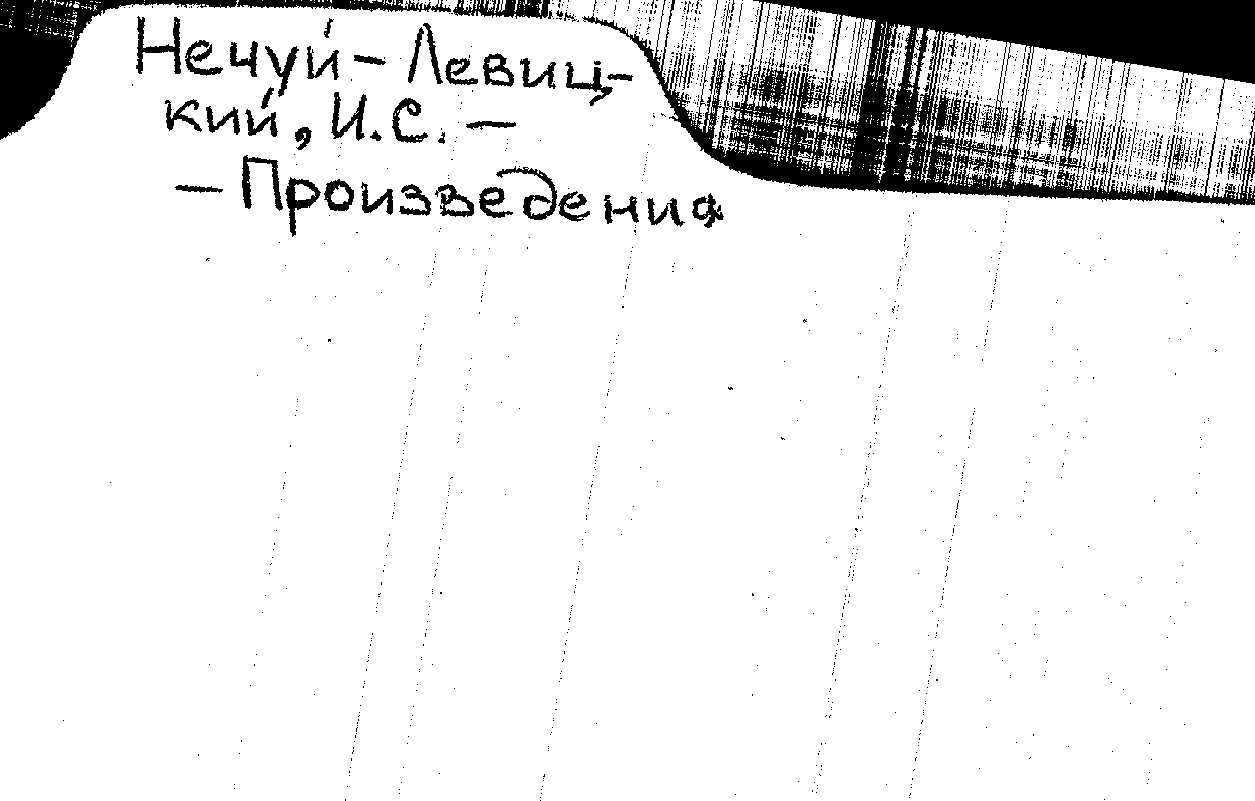 Нечуй-Левиц-
кий, И.С. —
— Произведения